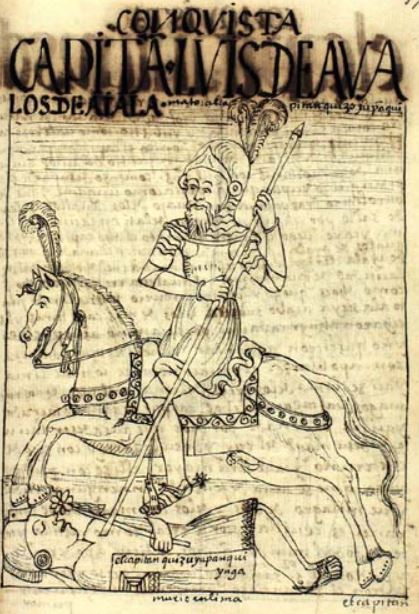 CONQVISTA
CAPITĀ·LVIS DE AVA
LOS DE AIALA· mato al ca pitan quizo yupāqui
el capitan quizu yupanqui
ynga
murio en lima
el capitan